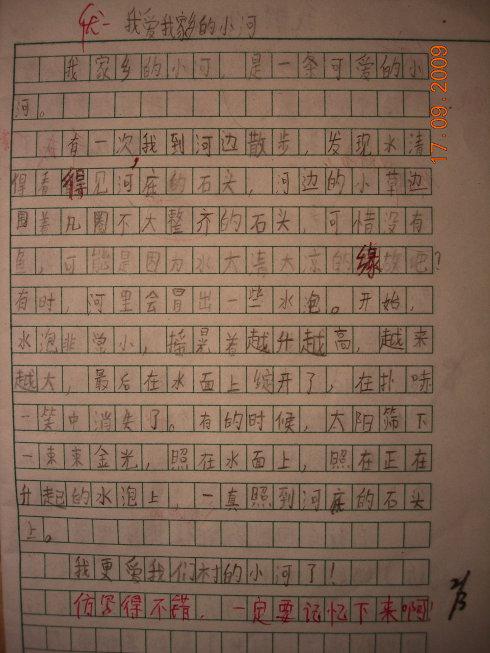 优- 我爱我家乡的小河
我家乡的小河,是一条可爱的小
河。
有一次,我到河边散步,发现水清
得看得见河底的石头,河边的小草边
围着几圈不大整齐的石头,可惜没有
鱼,可能是因为水太清太凉的缘故吧?
有时,河里会冒出一些水泡。开始,
水泡非常小,摇晃着越升越高,越来
越大,最后在水面上绽开了,在扑哧
一笑中消失了。有的时候,太阳筛下
一束束金光,照在水面上,照在正在
升起的水泡上,一真照到河底的石头
上。
我更爱我们村的小河了!
仿写得不错,一定要记忆下来啊!
17.09.2009